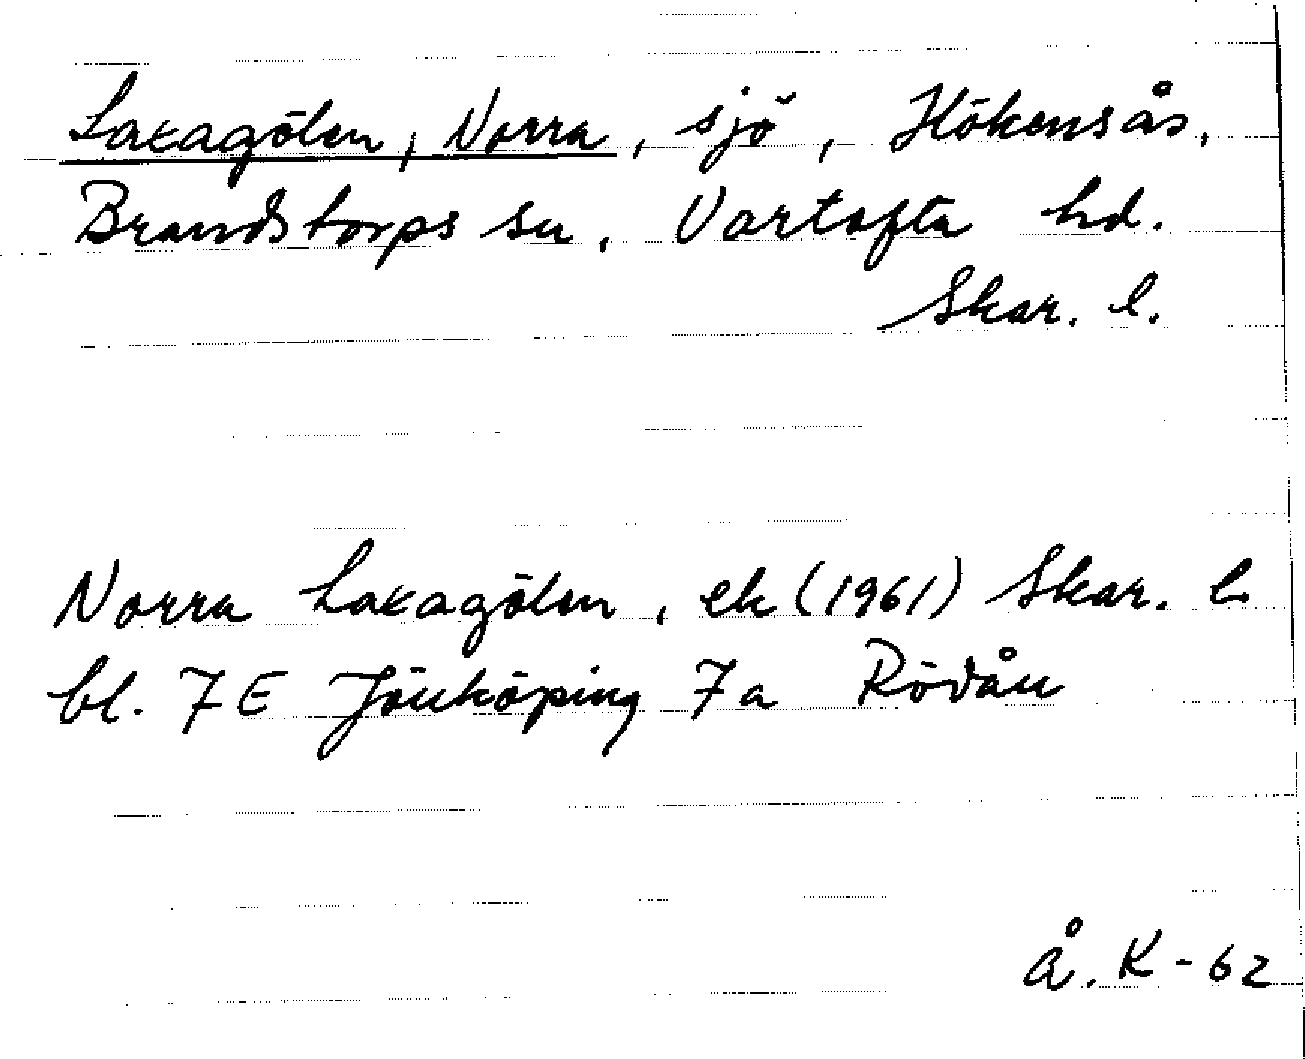 Laxagölen, Norra, sjö, Hökensås,
Brandstorps sn. Vartofta hd.
Skar. l.
Norra Laxagölen, ek (1961) Skar. l.
bl. 7E Jönköping 7a Rödån
Å. K - 62